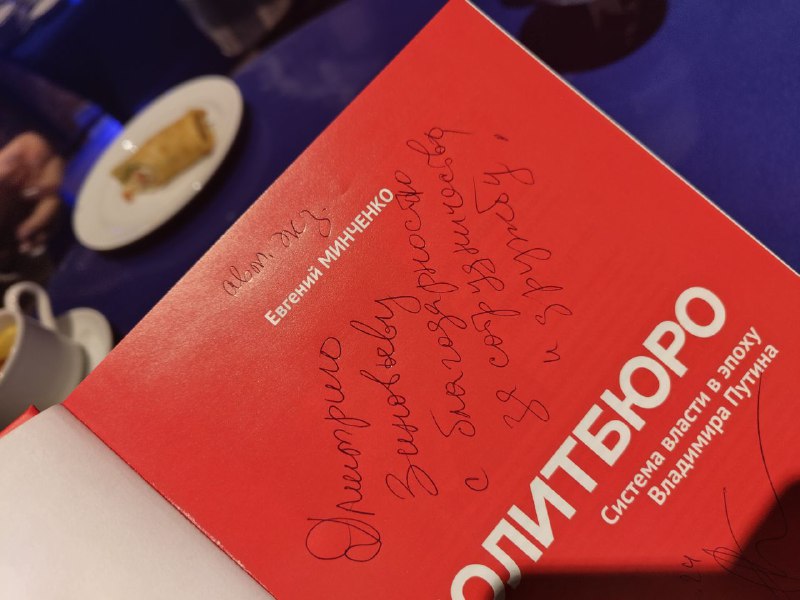 авт. экз.
Евгений МИНЧЕНКО
Дмитрию
Зиновьеву
с благодарностью
за сотрудничество
и дружбу,
ОЛИТБЮРО
Система власти в эпоху
Владимира Путина